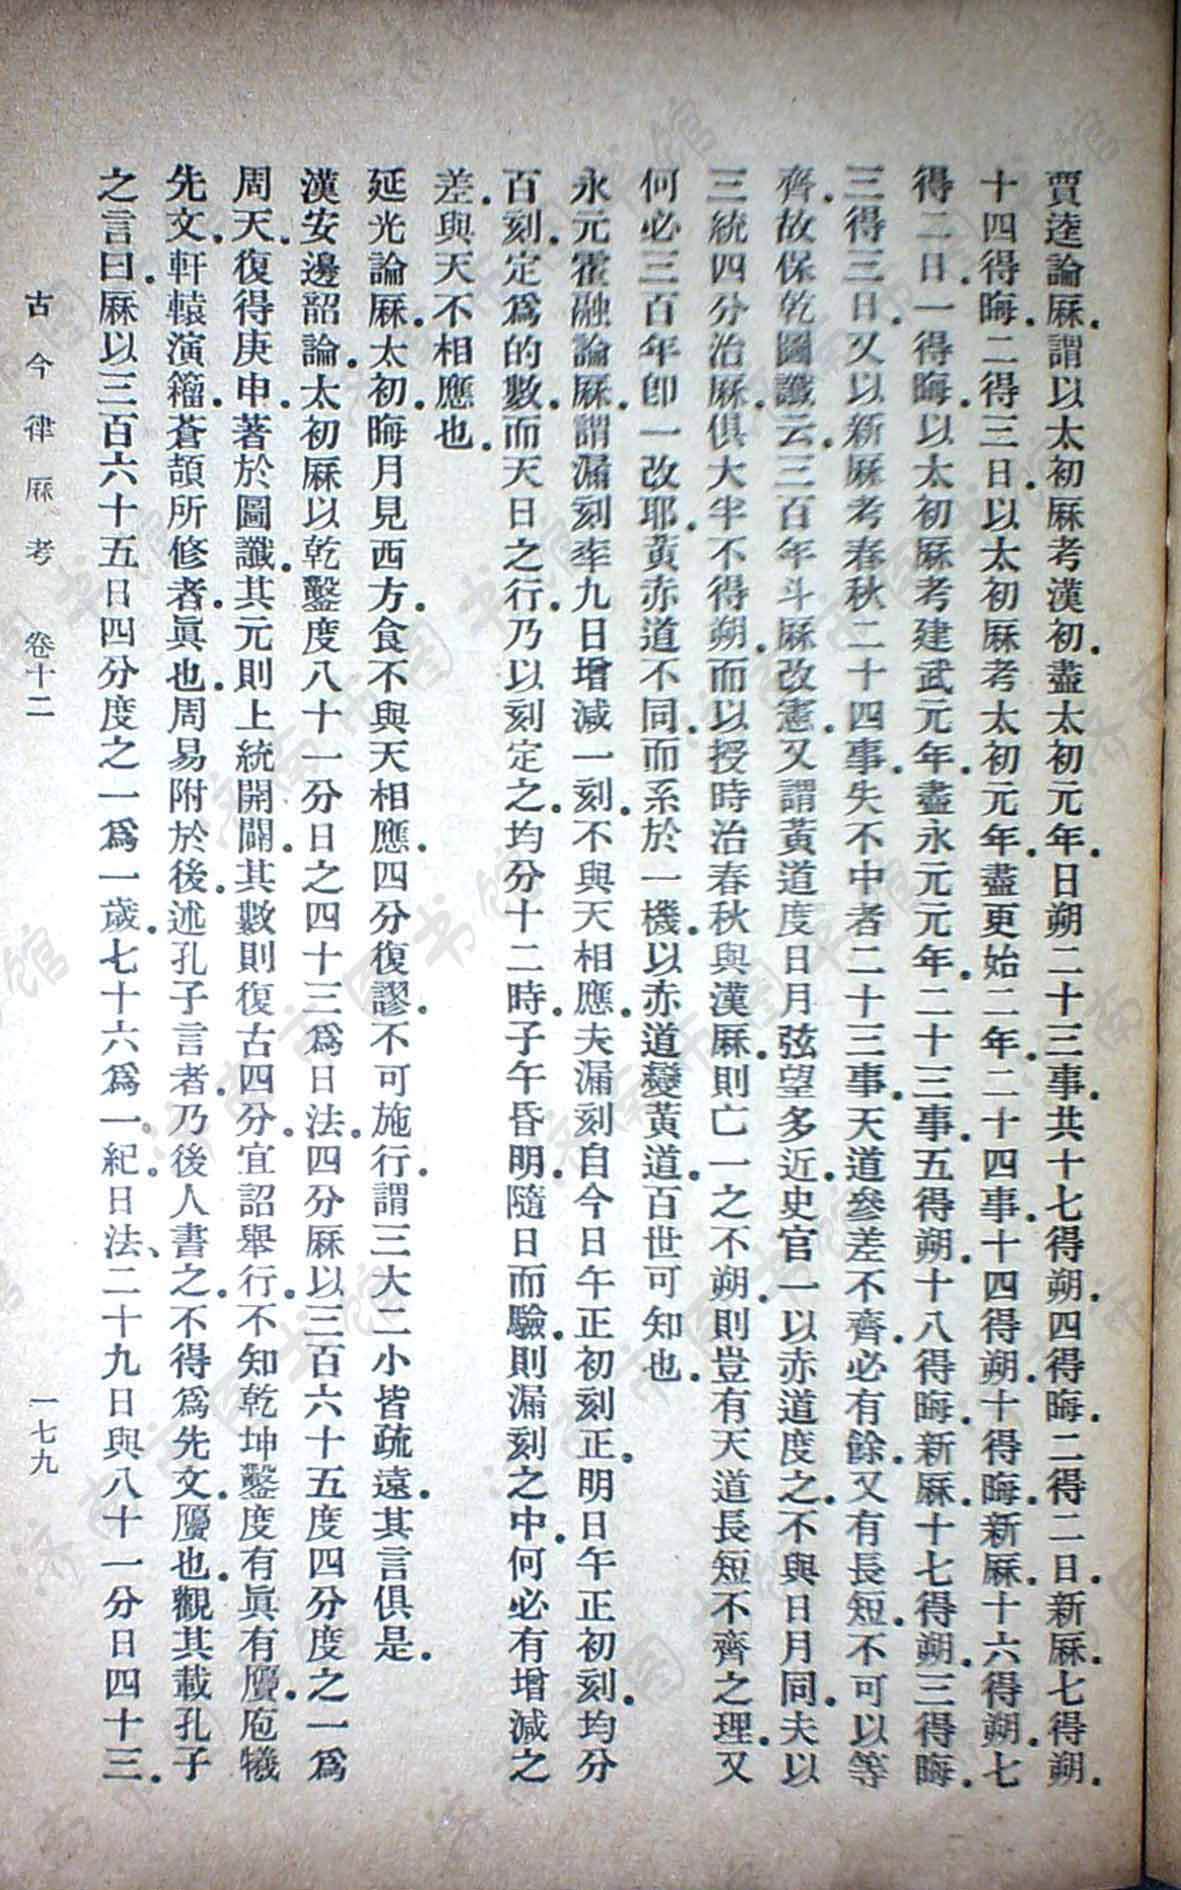 賈逵論厤．謂以太初厤考漢初．盡太初元年．日朔二十三事．共十七得朔．四得晦．二得二日．新厤．七得朔．
十四得晦．二得三日．以太初厤考太初元年．盡更始二年．二十四事．十四得朔．十得晦．新厤．十六得朔．七
得二日．一得晦．以太初厤考建武元年．盡永元元年．二十三事．五得朔．十八得晦．新厤．十七得朔．三得晦．
三得三日．又以新厤考春秋二十四事．失不中者二十三事．天道參差不齊．必有餘．又有長短．不可以等
齊．故保乾圖讖云．三百年斗厤改憲．又謂黃道度日月弦望多近．史官一以赤道度之．不與日月同．夫以
三統四分治厤．俱大半不得朔．而以授時治春秋與漢厤．則亡一之不朔．則豈有天道長短不齊之理．又
何必三百年卽一改耶．黃赤道不同．而系於一機．以赤道變黃道．百世可知也．
永元霍融論厤．謂漏刻率九日增減一刻．不與天相應．夫漏刻自今日午正初刻正．明日午正初刻．均分
百刻．定爲的數．而天日之行．乃以刻定之．均分十二時．子午昏明．隨日而驗．則漏刻之中．何必有增減之
差．與天不相應也．
延光論厤．太初晦月見西方．食不與天相應．四分復謬．不可施行．謂三大二小皆疏遠．其言俱是．
漢安邊韶論．太初厤以乾鑿度八十一分日之四十三爲日法．四分厤以三百六十五度四分度之一爲
周天．復得庚申．著於圖讖．其元則上統開闢．其數則復古四分．宜詔舉行．不知乾坤鑿度有眞有贗．庖犧
先文．軒轅演籀．蒼頡所修者．眞也．周易附於後．述孔子言者．乃後人書之．不得爲先文．贗也．觀其載孔子
之言曰．厤以三百六十五日四分度之一爲一歲．七十六爲一紀．日法、二十九日與八十一分日四十三．
古今律厤考　卷十二　一七九